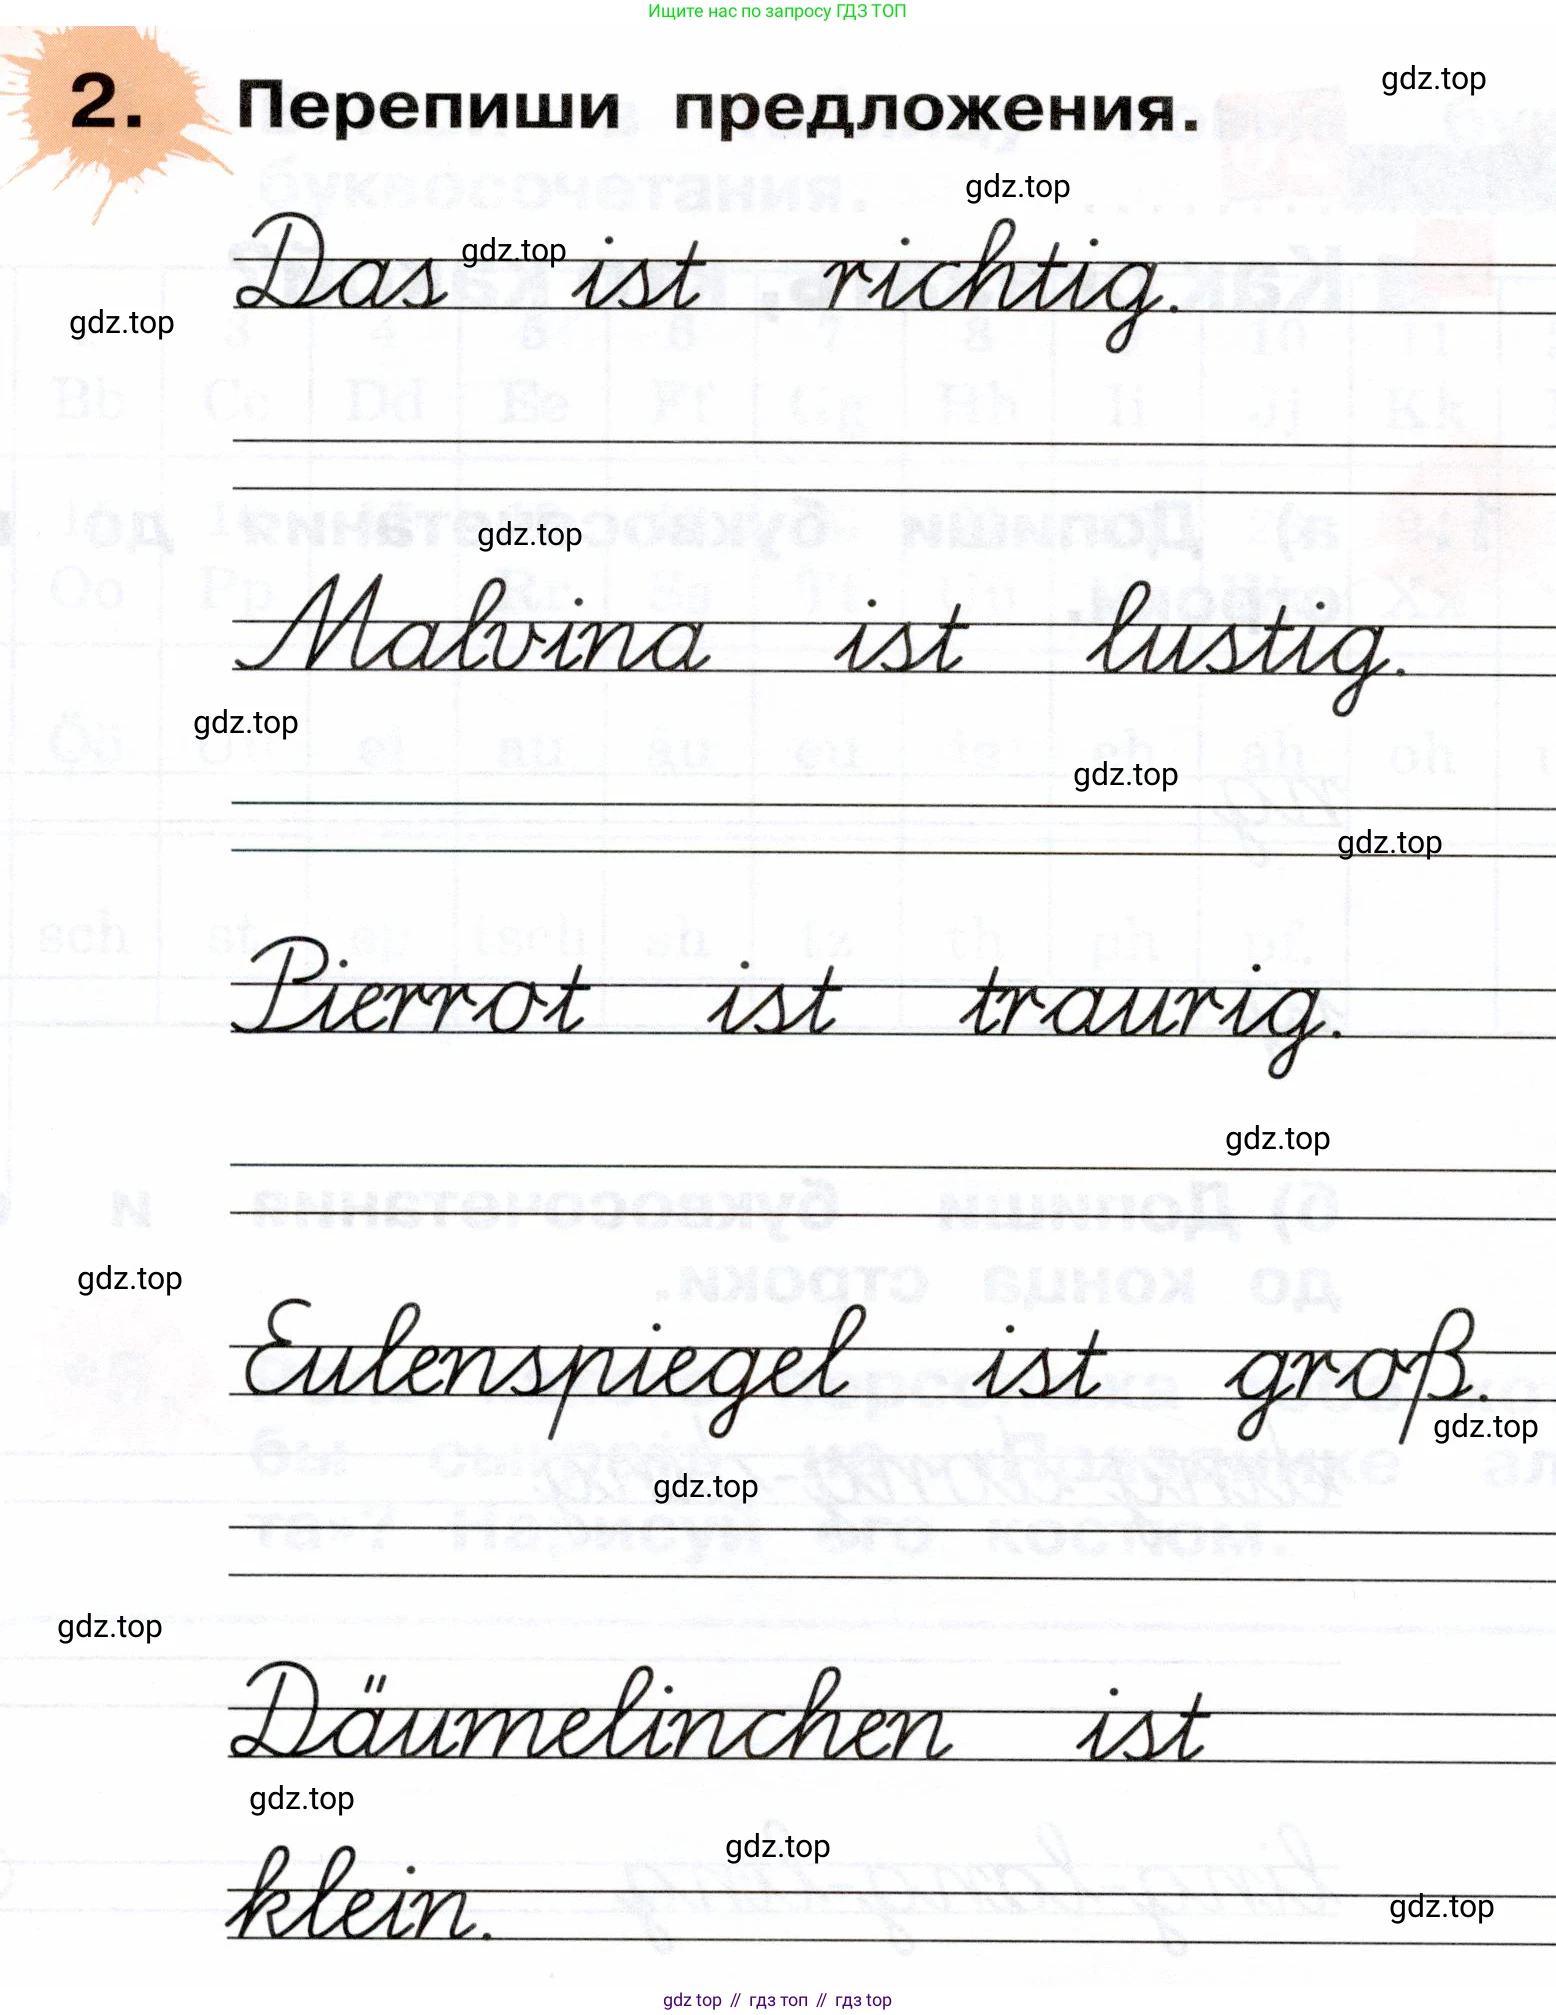 Ищите нас по запросу ГДЗ ТОП
2. Перепиши предложения.
gdz.top
gdz.top
Das gdz.top ist richtig.
gdz.top
gdz.top
Malvina ist lustig.
gdz.top
gdz.top
gdz.top
Pierrot ist traurig.
gdz.top
gdz.top
Eulenspiegel ist groß.
gdz.top
gdz.top
gdz.top
Däumelinchen ist
gdz.top
gdz.top
klein.
gdz.top
gdz top // гдз топ // гдз top